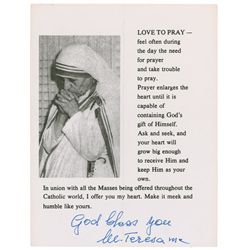 LOVE TO PRAY —
feel often during
the day the need
for prayer
and take trouble
to pray.
Prayer enlarges
the heart until it is
capable of
containing God's
gift of Himself.
Ask and seek, and
your heart will
grow big enough
to receive Him and
keep Him as your
own.
In union with all the Masses being offered throughout the
Catholic world, I offer you my heart. Make it meek and
humble like yours.
God bless you
M. Teresa mc